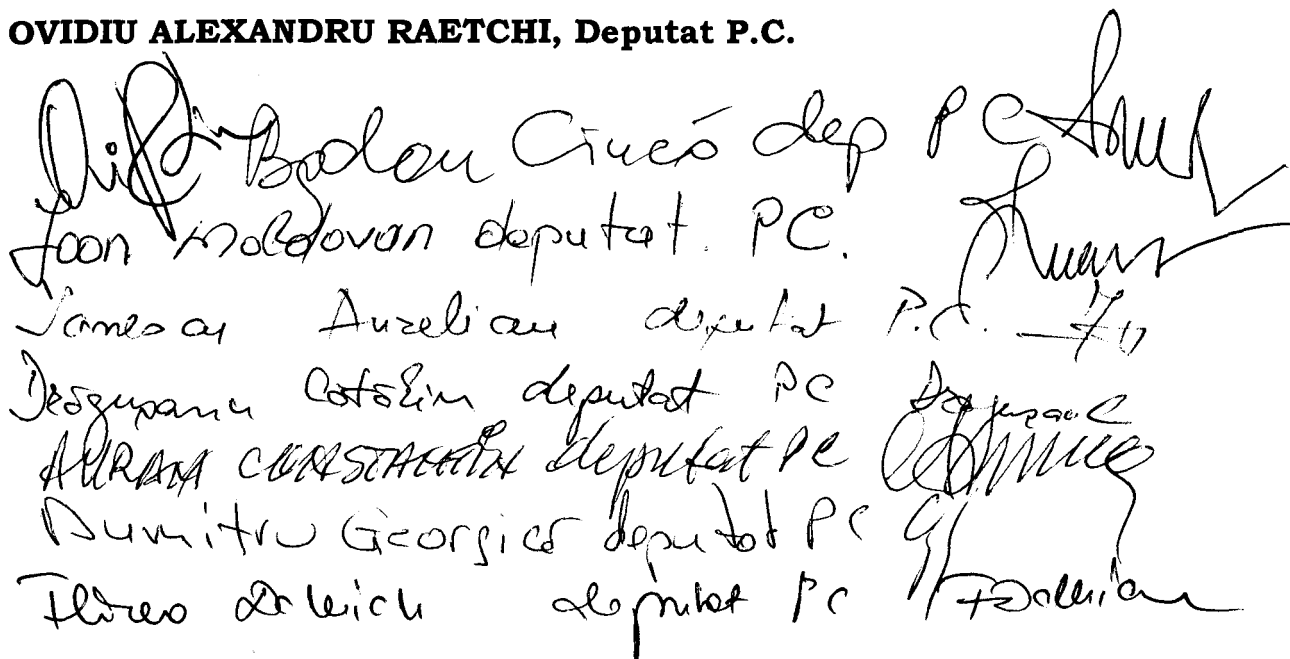 OVIDIU ALEXANDRU RAETCHI, Deputat P.C.
Bogdan Ciucă dep PC
Ioan Moldovan deputat. PC.
Aurelian deputat P.C.
Drăgușanu Cătălin deputat PC
AVRAM CONSTANTIN deputat PC
Dumitru Georgică deputat PC
Damian deputat PC